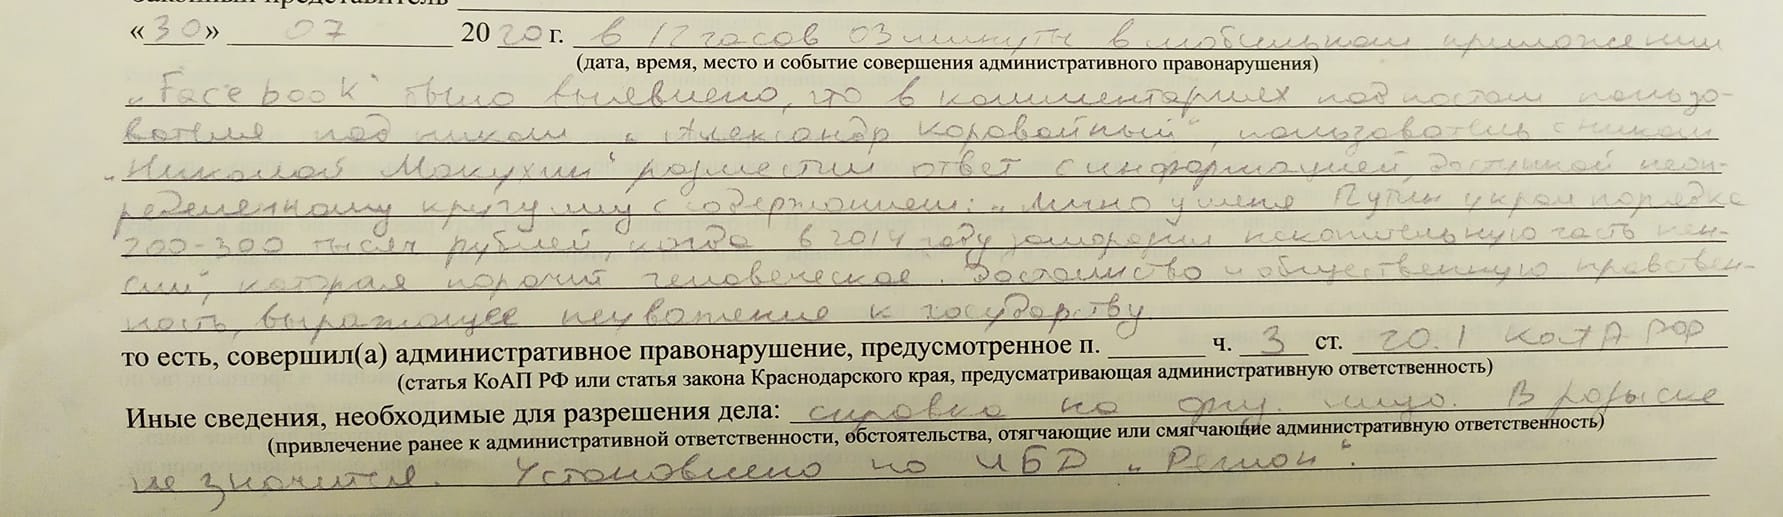 Законный представитель
«30» 07 2020 г. в 12 часов 03 минуты в мобильном приложении
(дата, время, место и событие совершения административного правонарушения)
„Facebook“ было выявлено, что в комментариях под постом пользо-
вателя под ником „Александр Коровайный“, пользователь с ником
„Николай Макухин“ разместил ответ с информацией, доступной неоп-
ределенному кругу лиц с содержанием: „Лично у меня Путин украл порядка
200-300 тысяч рублей, когда в 2014 году заморозил накопительную часть пен-
сии“, которая порочит человеческое достоинство и общественную нравствен-
ность, выражающее неуважение к государству.
то есть, совершил(а) административное правонарушение, предусмотренное п. ч. 3 ст. 20.1 КоАП РФ
(статья КоАП РФ или статья закона Краснодарского края, предусматривающая административную ответственность)
Иные сведения, необходимые для разрешения дела: справка на физ. лицо. В розыске
(привлечение ранее к административной ответственности, обстоятельства, отягчающие или смягчающие административную ответственность)
не значится. Установлено по ИБД „Регион“.